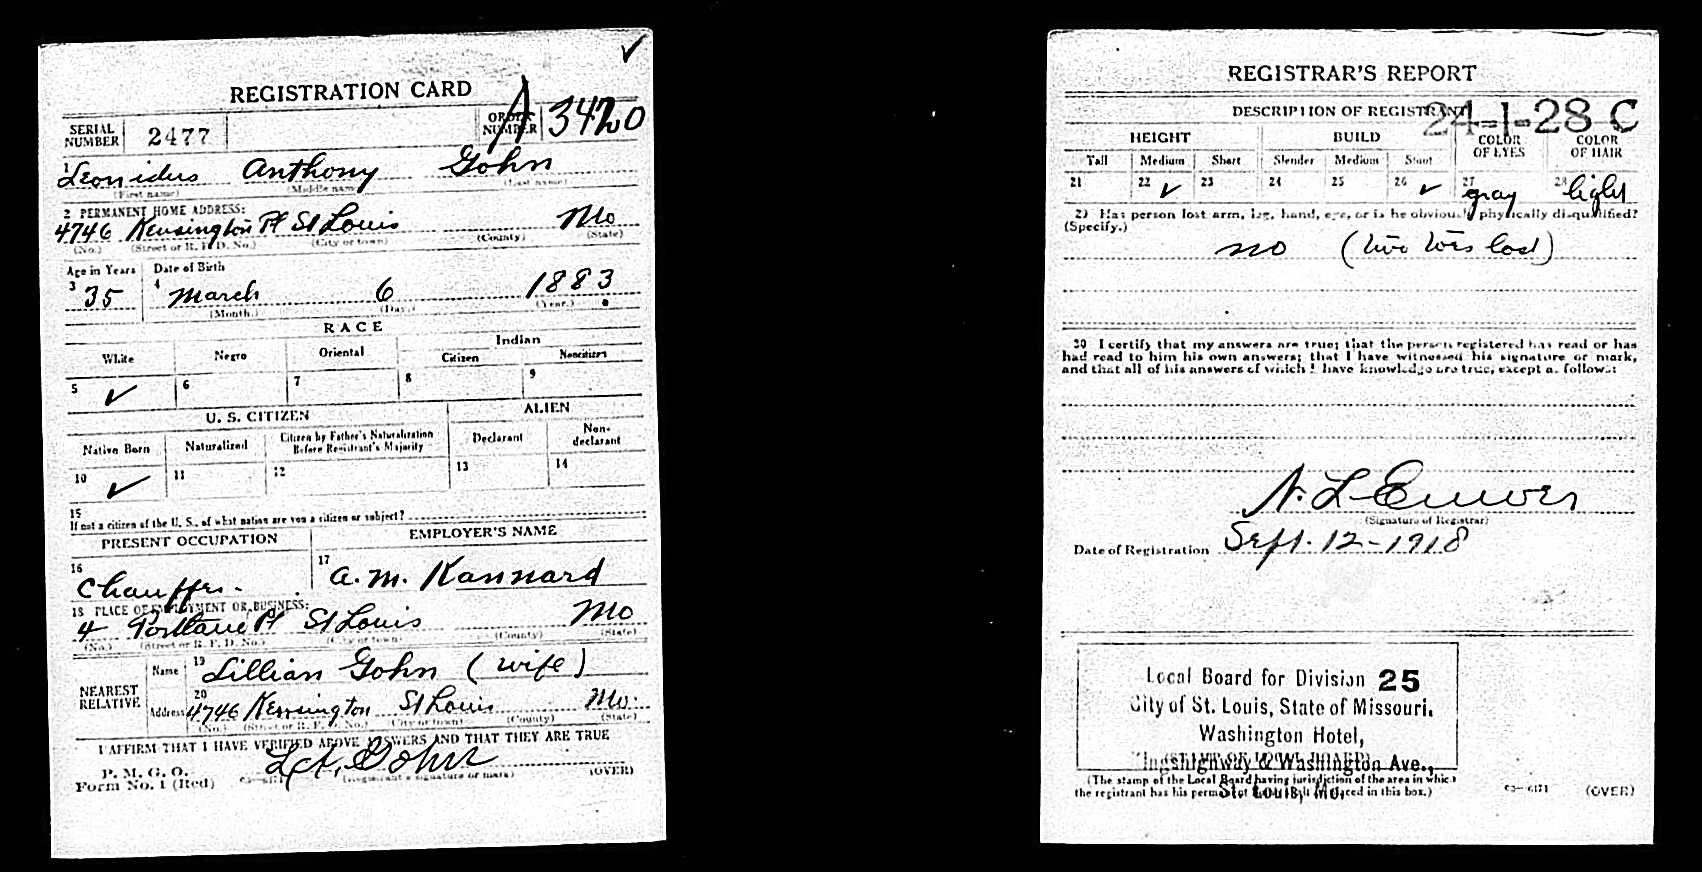 ✓
REGISTRATION CARD
SERIAL NUMBER 2477 ORDER NUMBER A 3420
1 Leonidus Anthony Gohn
(First name) (Middle name) (Last name)
2 PERMANENT HOME ADDRESS:
4746 Kensington Pl St Louis Mo
(No.) (Street or R. F. D. No.) (City or town) (County) (State)
Age in Years Date of Birth
3 35 4 March 6 1883
(Month.) (Day.) (Year.)
RACE
White Negro Oriental Indian
Citizen Noncitizen
5 ✓ 6 7 8 9
U. S. CITIZEN ALIEN
Native Born Naturalized Citizen by Father's Naturalization Before Registrant's Majority Declarant Non-declarant
10 ✓ 11 12 13 14
15
If not a citizen of the U. S., of what nation are you a citizen or subject?
PRESENT OCCUPATION EMPLOYER'S NAME
16 Chauffer. 17 A. M. Kannard
18 PLACE OF EMPLOYMENT OR BUSINESS:
4 Pl St Louis Mo
(No.) (Street or R. F. D. No.) (City or town) (County) (State)
NEAREST RELATIVE Name 19 Lillian Gohn (wife)
Address 20 4746 Kensington St Louis Mo.
(No.) (Street or R. F. D. No.) (City or town) (County) (State)
I AFFIRM THAT I HAVE VERIFIED ABOVE ANSWERS AND THAT THEY ARE TRUE
P. M. G. O.
Form No. 1 (Red) L A. Gohn
(Registrant's signature or mark) (OVER)
REGISTRAR'S REPORT
24-1-28 C
DESCRIPTION OF REGISTRANT
HEIGHT BUILD COLOR OF EYES COLOR OF HAIR
Tall Medium Short Slender Medium Stout
21 22 ✓ 23 24 25 26 ✓ 27 gray 28 light
29 Has person lost arm, leg, hand, eye, or is he obviously physically disqualified?
(Specify.)
no (two toes lost)
30 I certify that my answers are true; that the person registered has read or has
had read to him his own answers; that I have witnessed his signature or mark,
and that all of his answers of which I have knowledge are true, except as follows:
(Signature of Registrar)
Date of Registration Sept. 12 - 1918
Local Board for Division 25
City of St. Louis, State of Missouri.
Washington Hotel,
(STAMP OF LOCAL BOARD)
Kingshighway & Washington Ave.,
(The stamp of the Local Board having jurisdiction of the area in which
the registrant has his permanent home shall be placed in this box.)
St. Louis, Mo.
03—6171 (OVER)